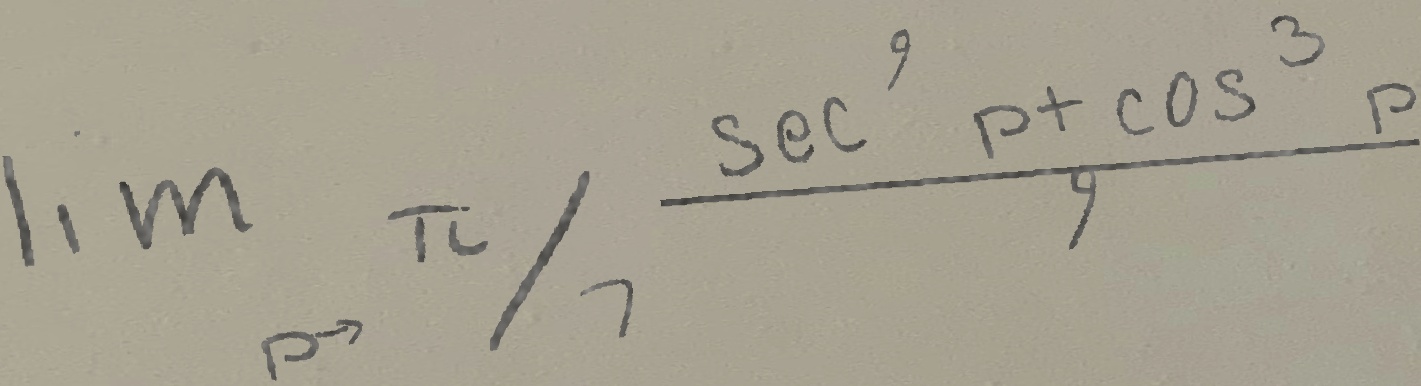 \lim_{p \to \pi/7} \frac{\sec^9 p + \cos^3 p}{9}